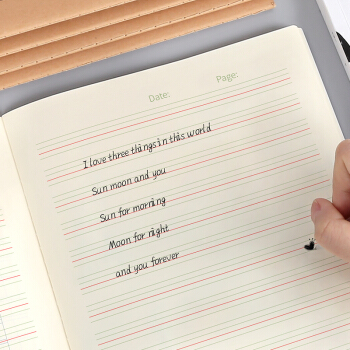 Date: Page:
I love three things in this world
Sun moon and you
Sun for morning
Moon for night
and you forever